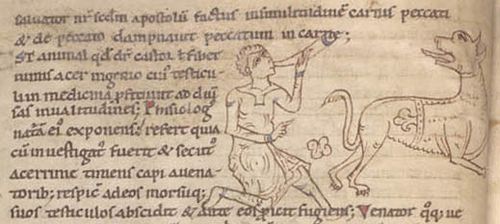 saluator nr̄ scd̄m apostolū factus in similitudinē carnis peccati
& de peccato dampnauit peccatum in carne;
St animal qd̄ dr̄ castor ł fiber
nimis acer ingenio cuī testicu
li in medicina proficiunt ad diuͥ
sas inualitudines; Phisiologꝰ
naturā eiꝰ exponens; refert quia
cū inuestigatꝰ fuerit & secutꝰ
acerrime timens capi a uena
torib; respic̄ ad eos morsuq;
suos testiculos abscidit & ante eos p̄icit fugiens; Venator